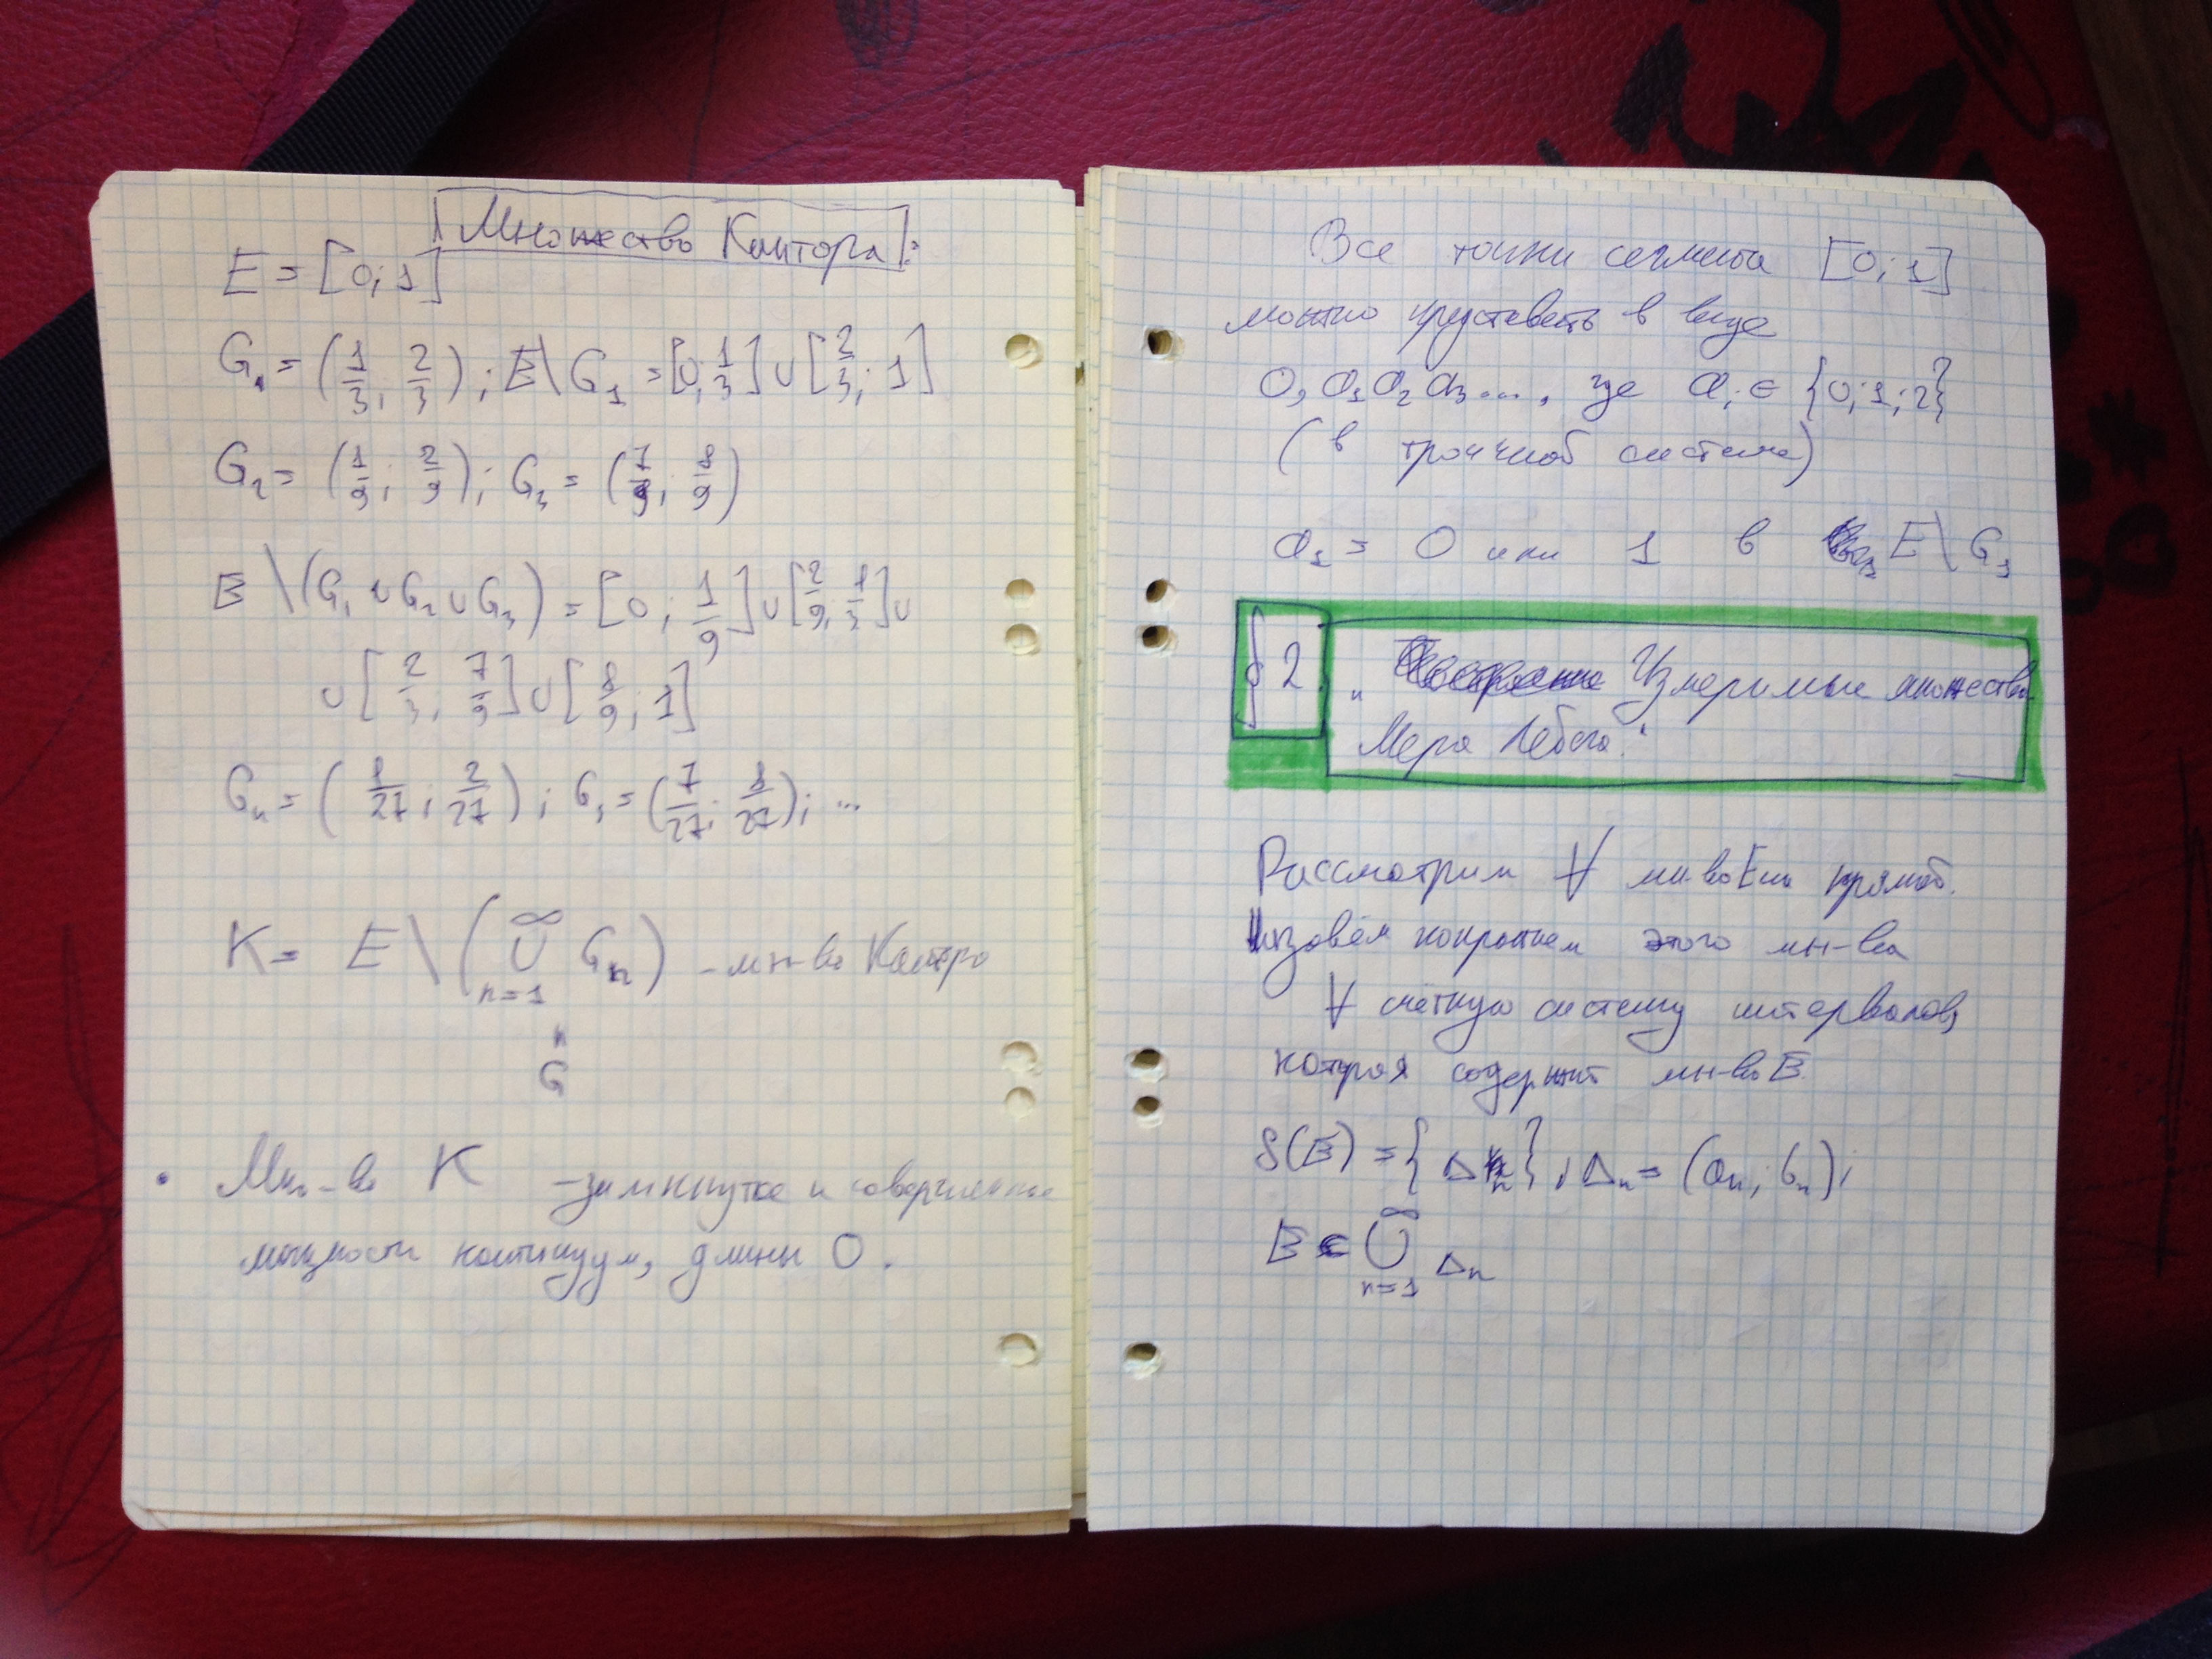 Множество Кантора:
E = [0; 1]
G₁ = (1/3; 2/3); E\G₁ = [0; 1/3] ∪ [2/3; 1]
G₂ = (1/9; 2/9); G₃ = (7/9; 8/9)
E\(G₁ ∪ G₂ ∪ G₃) = [0; 1/9] ∪ [2/9; 1/3] ∪
∪ [2/3; 7/9] ∪ [8/9; 1]
G₄ = (1/27; 2/27); G₅ = (7/27; 8/27); ...
K = E\(∞ ∪ n=1 Gₙ) - мн-во Кантора
"
G
• Мн-во K - замкнутое и совершенное
мощности континуум, длины 0.
Все точки сегмента [0; 1]
можно представить в виде
0, a₁ a₂ a₃ ..., где aᵢ ∈ {0; 1; 2}
(в троичной системе)
a₁ = 0 или 1 в E\G₁
§ 2. „ Измеримые множества
Мера Лебега."
Рассмотрим ∀ мн-во E на прямой.
Назовём покрытием этого мн-ва
∀ счётную систему интервалов,
которая содержит мн-во E.
S(E) = {Δₙ}, Δₙ = (aₙ; bₙ);
E ⊂ ∞ ∪ n=1 Δₙ